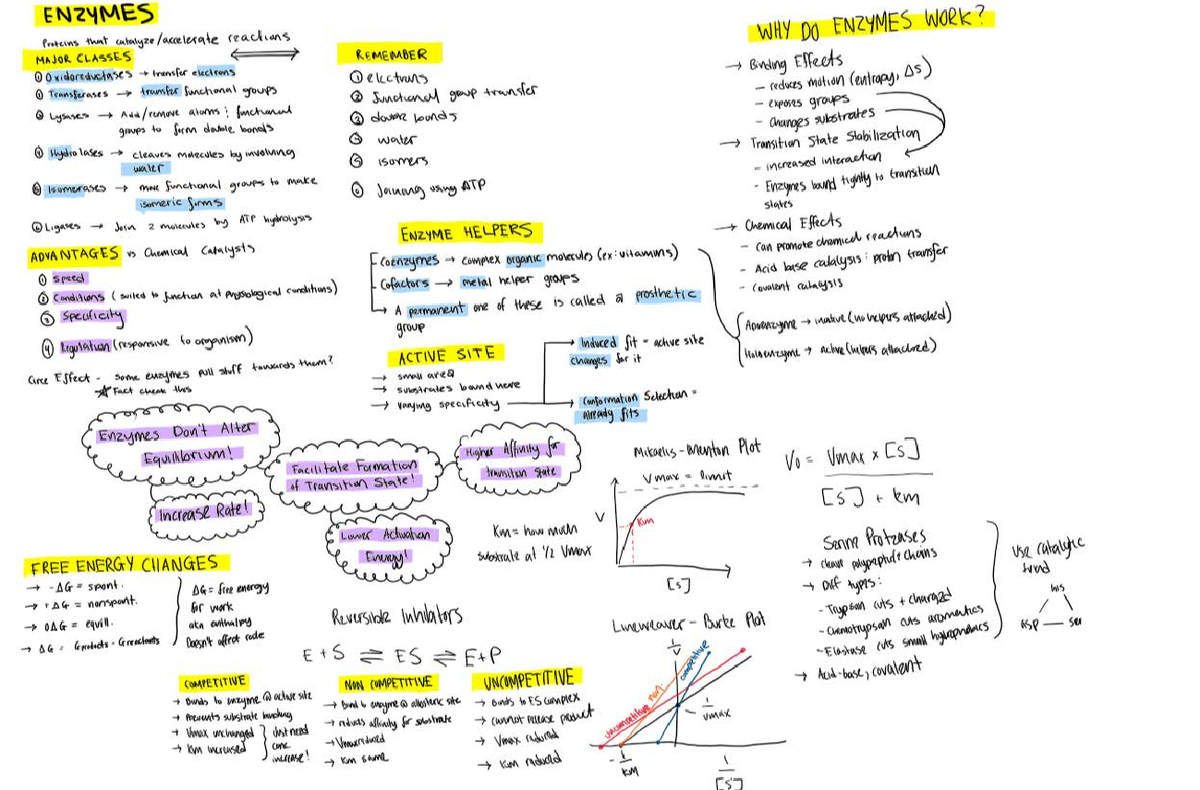 ENZYMES
Proteins that catalyze/accelerate reactions
MAJOR CLASSES
① Oxidoreductases → transfer electrons
② Transferases → transfer functional groups
③ Lysases → Add/remove atoms; functional
groups to form double bonds
④ Hydrolases → cleaves molecules by involving
water
⑤ Isomerases → move functional groups to make
isomeric forms
⑥ Ligases → Join 2 molecules by ATP hydrolysis
ADVANTAGES vs Chemical Catalysts
① Speed
② Conditions (suited to function at physiological conditions)
③ Specificity
④ Regulation (responsive to organism)
Circe Effect - some enzymes pull stuff towards them?
★ Fact check this
REMEMBER
① electrons
② functional group transfer
③ double bonds
④ water
⑤ isomers
⑥ Joining using ATP
ENZYME HELPERS
Coenzymes → complex organic molecules (ex: vitamins)
Cofactors → metal helper groups
A permanent one of these is called a prosthetic
group
Apoenzyme → inactive (no helpers attached)
Holoenzyme → active (helpers attached)
ACTIVE SITE
→ small area
→ substrates bound here
→ varying specificity
Induced fit = active site
changes for it
Conformation Selection =
already fits
WHY DO ENZYMES WORK?
→ Binding Effects
- reduces motion (entropy, ΔS)
- exposes groups
- changes substrates
→ Transition State Stabilization
- increased interaction
- Enzymes bound tightly to transition
states
→ Chemical Effects
- can promote chemical reactions
- Acid base catalysis: proton transfer
- covalent catalysis
Enzymes Don't Alter
Equilibrium!
Increase Rate!
Facilitate Formation
of Transition State!
Lower Activation
Energy!
Higher Affinity for
transition state
Mikaelis-Menton Plot
Vmax = limit
V
Km
[S]
Km = how much
substrate at 1/2 Vmax
V₀ = Vmax x [S]
[S] + km
FREE ENERGY CHANGES
→ -ΔG = spont.
→ +ΔG = nonspont.
→ 0ΔG = equill.
→ ΔG = Gproducts - Greactants
ΔG = free energy
for work
aka enthalpy
Doesn't affect rate
Reversible Inhibitors
E + S ⇌ ES ⇌ E+P
COMPETITIVE
→ Binds to enzyme @ active site
→ Prevents substrate binding
→ Vmax unchanged
→ Km increased
Just need
conc
increase!
NON COMPETITIVE
→ Bind to enzyme @ allosteric site
→ reduces affinity for substrate
→ Vmax reduced
→ Km same
UNCOMPETITIVE
→ Binds to ES complex
→ cannot release product
→ Vmax reduced
→ Km reduced
Lineweaver-Burke Plot
1/V
uncompetitive
non
competitive
1/Vmax
-1/KM
1/[S]
Serine Proteases
→ cleave polypeptide chains
→ Diff types:
- Trypsan cuts + charged
- Chemotrypsan cuts aromatics
- Elastase cuts small hydrophobics
→ Acid-base, covalent
Use catalytic
triad
His
Asp — Ser